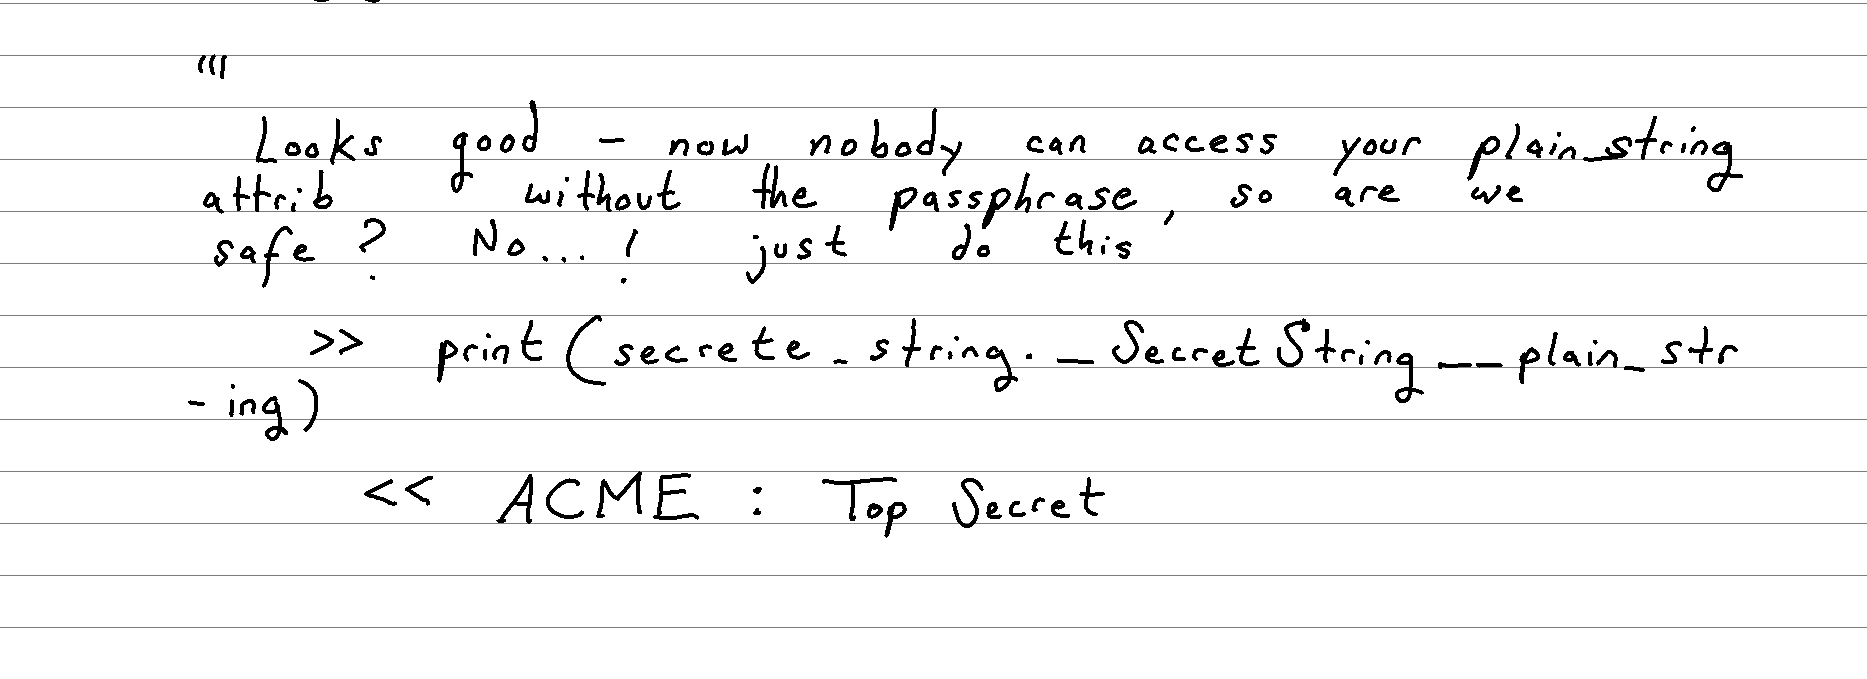 "'
Looks good - now nobody can access your plain_string
attrib without the passphrase, so are we
safe? No...! just do this
>> print(secrete_string._SecretString__plain_str
-ing)
<< ACME : Top Secret